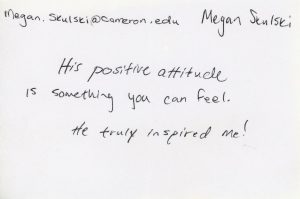 Megan.Skulski@cameron.edu Megan Skulski
His positive attitude
is something you can feel.
He truly inspired me!